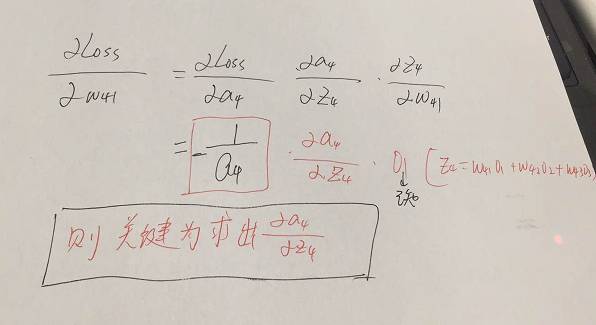 ∂Loss/∂w41 = ∂Loss/∂a4 · ∂a4/∂z4 · ∂z4/∂w41
= -1/a4 · ∂a4/∂z4 · O1 [z4=w41O1+w42O2+w43O3
↓
已知
则关键为求出 ∂a4/∂z4